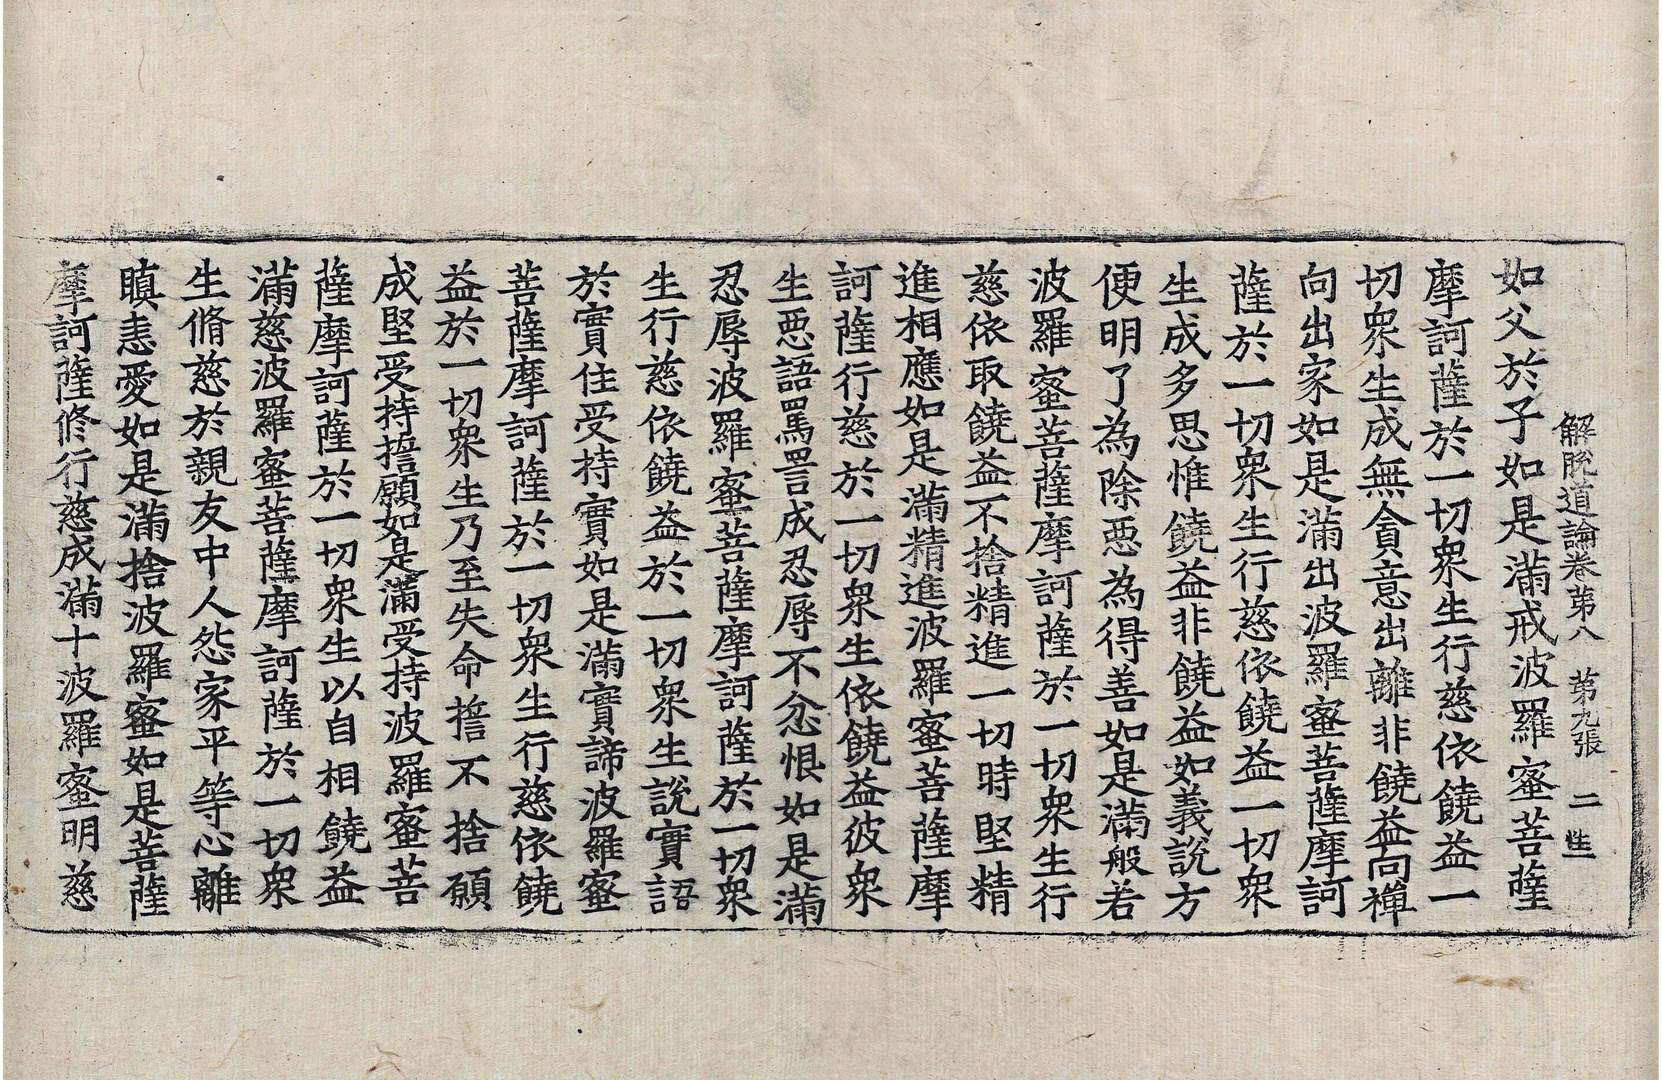 解脫道論卷第八　第九張　二　性
如父於子如是滿戒波羅蜜菩薩
摩訶薩於一切衆生行慈依饒益一
切衆生成無貪意出離非饒益向禪
向出家如是滿出波羅蜜菩薩摩訶
薩於一切衆生行慈依饒益一切衆
生成多思惟饒益非饒益如義說方
便明了為除惡為得善如是滿般若
波羅蜜菩薩摩訶薩於一切衆生行
慈依取饒益不捨精進一切時堅精
進相應如是滿精進波羅蜜菩薩摩
訶薩行慈於一切衆生依饒益彼衆
生惡語罵詈成忍辱不忿恨如是滿
忍辱波羅蜜菩薩摩訶薩於一切衆
生行慈依饒益於一切衆生說實語
於實住受持實如是滿實諦波羅蜜
菩薩摩訶薩於一切衆生行慈依饒
益於一切衆生乃至失命誓不捨願
成堅受持誓願如是滿受持波羅蜜菩
薩摩訶薩於一切衆生以自相饒益
滿慈波羅蜜菩薩摩訶薩於一切衆
生脩慈於親友中人怨家平等心離
瞋恚愛如是滿捨波羅蜜如是菩薩
摩訶薩修行慈成滿十波羅蜜明慈